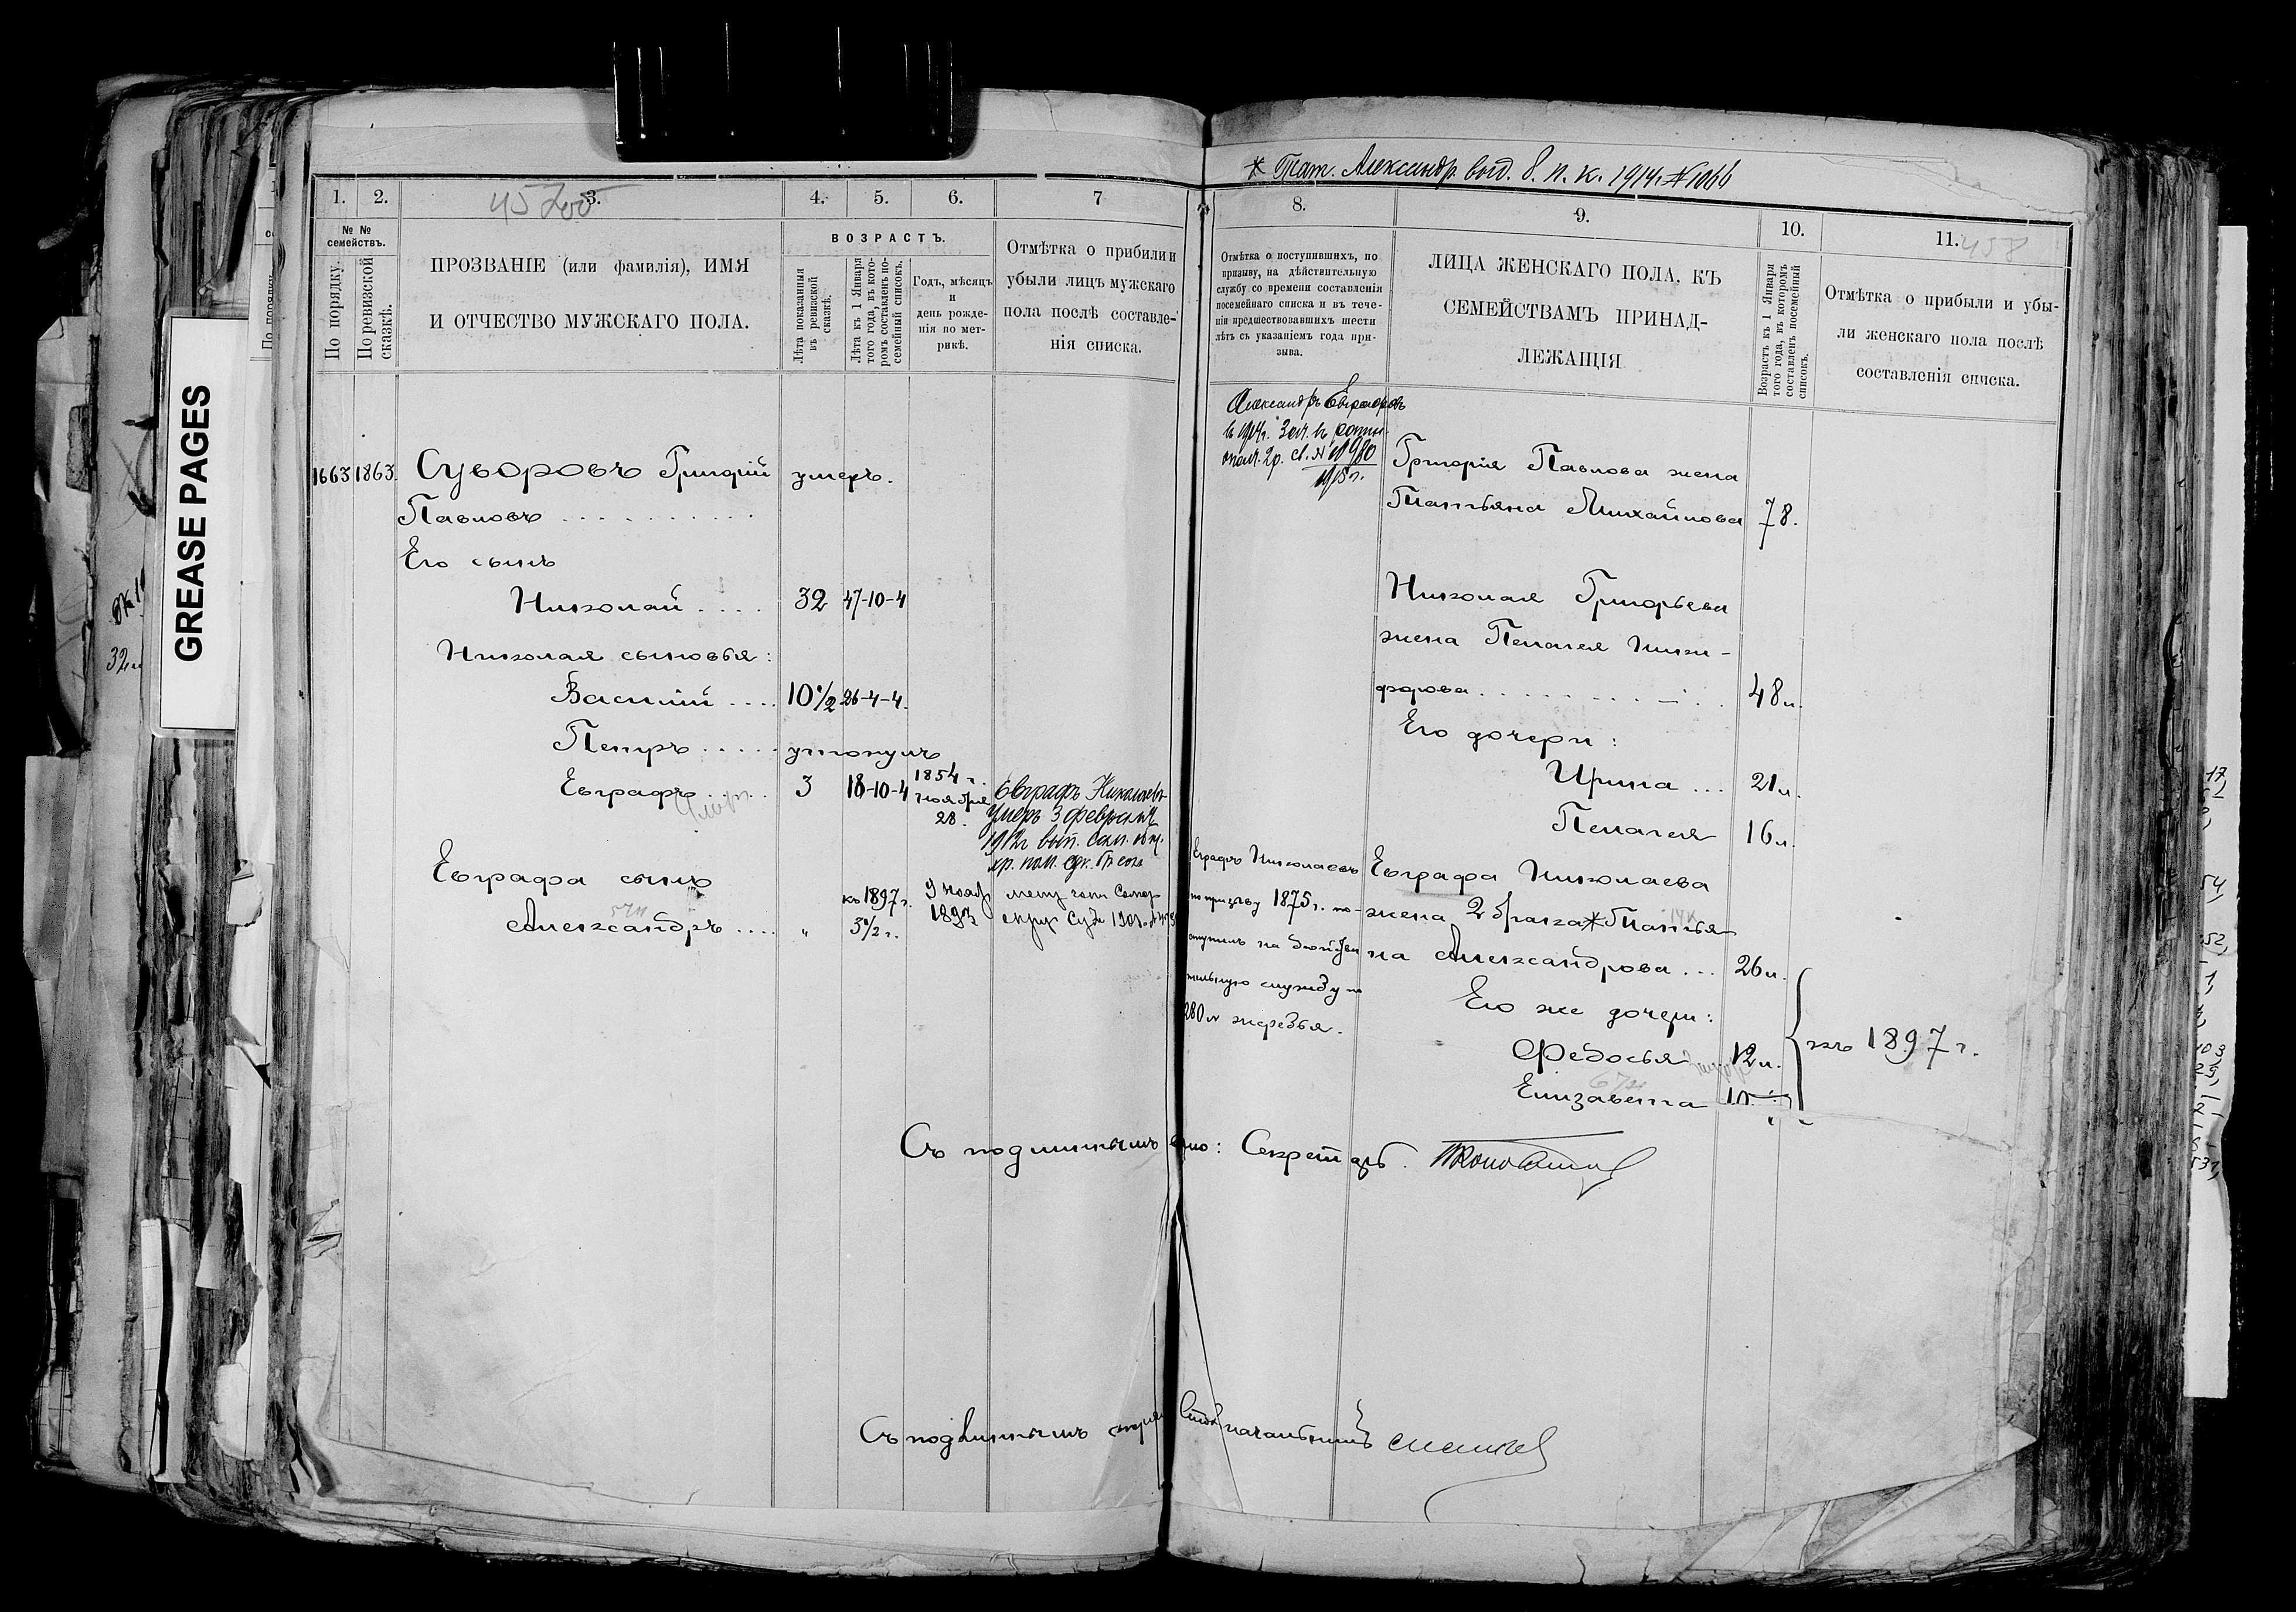 * Тат. Александр. выд. 8. п. к. 1914г. № 1066
1. 2. 3. 4. 5. 6. 7
№ № семействъ.
По порядку.
По ревизской сказкѣ.
ПРОЗВАНІЕ (или фамилія), ИМЯ
И ОТЧЕСТВО МУЖСКАГО ПОЛА.
ВОЗРАСТЪ.
Лѣта показанныя въ ревизской сказкѣ.
Лѣта къ 1 Января того года, въ которомъ составленъ посемейный списокъ.
Годъ, мѣсяцъ
и
день рожде-
нія по мет-
рикѣ.
Отмѣтка о прибыли и
убыли лицъ мужскаго
пола послѣ составле-
нія списка.
1663 1863. Суворовъ Григорій умеръ.
Павловъ
Его сынъ
Николай 32 47-10-4
Николая сыновья:
Василій 10½ 26-4-4.
Петръ утонулъ
Евграфъ 3 18-10-4 1854 г.
ноября
28.
умеръ
Евграфъ Николаевъ
умеръ 3 февраля
1912г.
Евграфа сынъ
Александръ " къ 1897 г.
3½ г.
9 нояб.
1893
GREASE PAGES
8. 9. 10. 11. 458
Отмѣтка о поступившихъ, по
призыву, на дѣйствительную
службу со времени составленія
посемейнаго списка и въ тече-
ніи предшествовавшихъ шести
лѣтъ съ указаніемъ года при-
зыва.
ЛИЦА ЖЕНСКАГО ПОЛА, КЪ
СЕМЕЙСТВАМЪ ПРИНАД-
ЛЕЖАЩІЯ
Возрастъ къ 1 Января того года, въ которомъ составленъ посемейный списокъ.
Отмѣтка о прибыли и убы-
ли женскаго пола послѣ
составленія списка.
Александръ Евграфовъ
въ 1914г. Зач. въ ратн.
опол. 2р. св. № 10980
1915г.
Григорія Павлова жена
Татьяна Михайлова 78.
Николая Григорьева
жена Пелагея Ники-
форова 48 л.
Его дочери:
Ирина 21 л.
Пелагея 16 л.
Евграфъ Николаевъ
по призыву 1875 г. по-
ступилъ на дѣйстви
тельную службу по
280 № жеребья.
Евграфа Николаева
жена 2 брака * Татья
на Александрова 26 л.
Его же дочери:
Федосья 12 л.
Елизавета
къ 1897 г.
Съ подлиннымъ вѣрно: Секретарь
Съ подлиннымъ